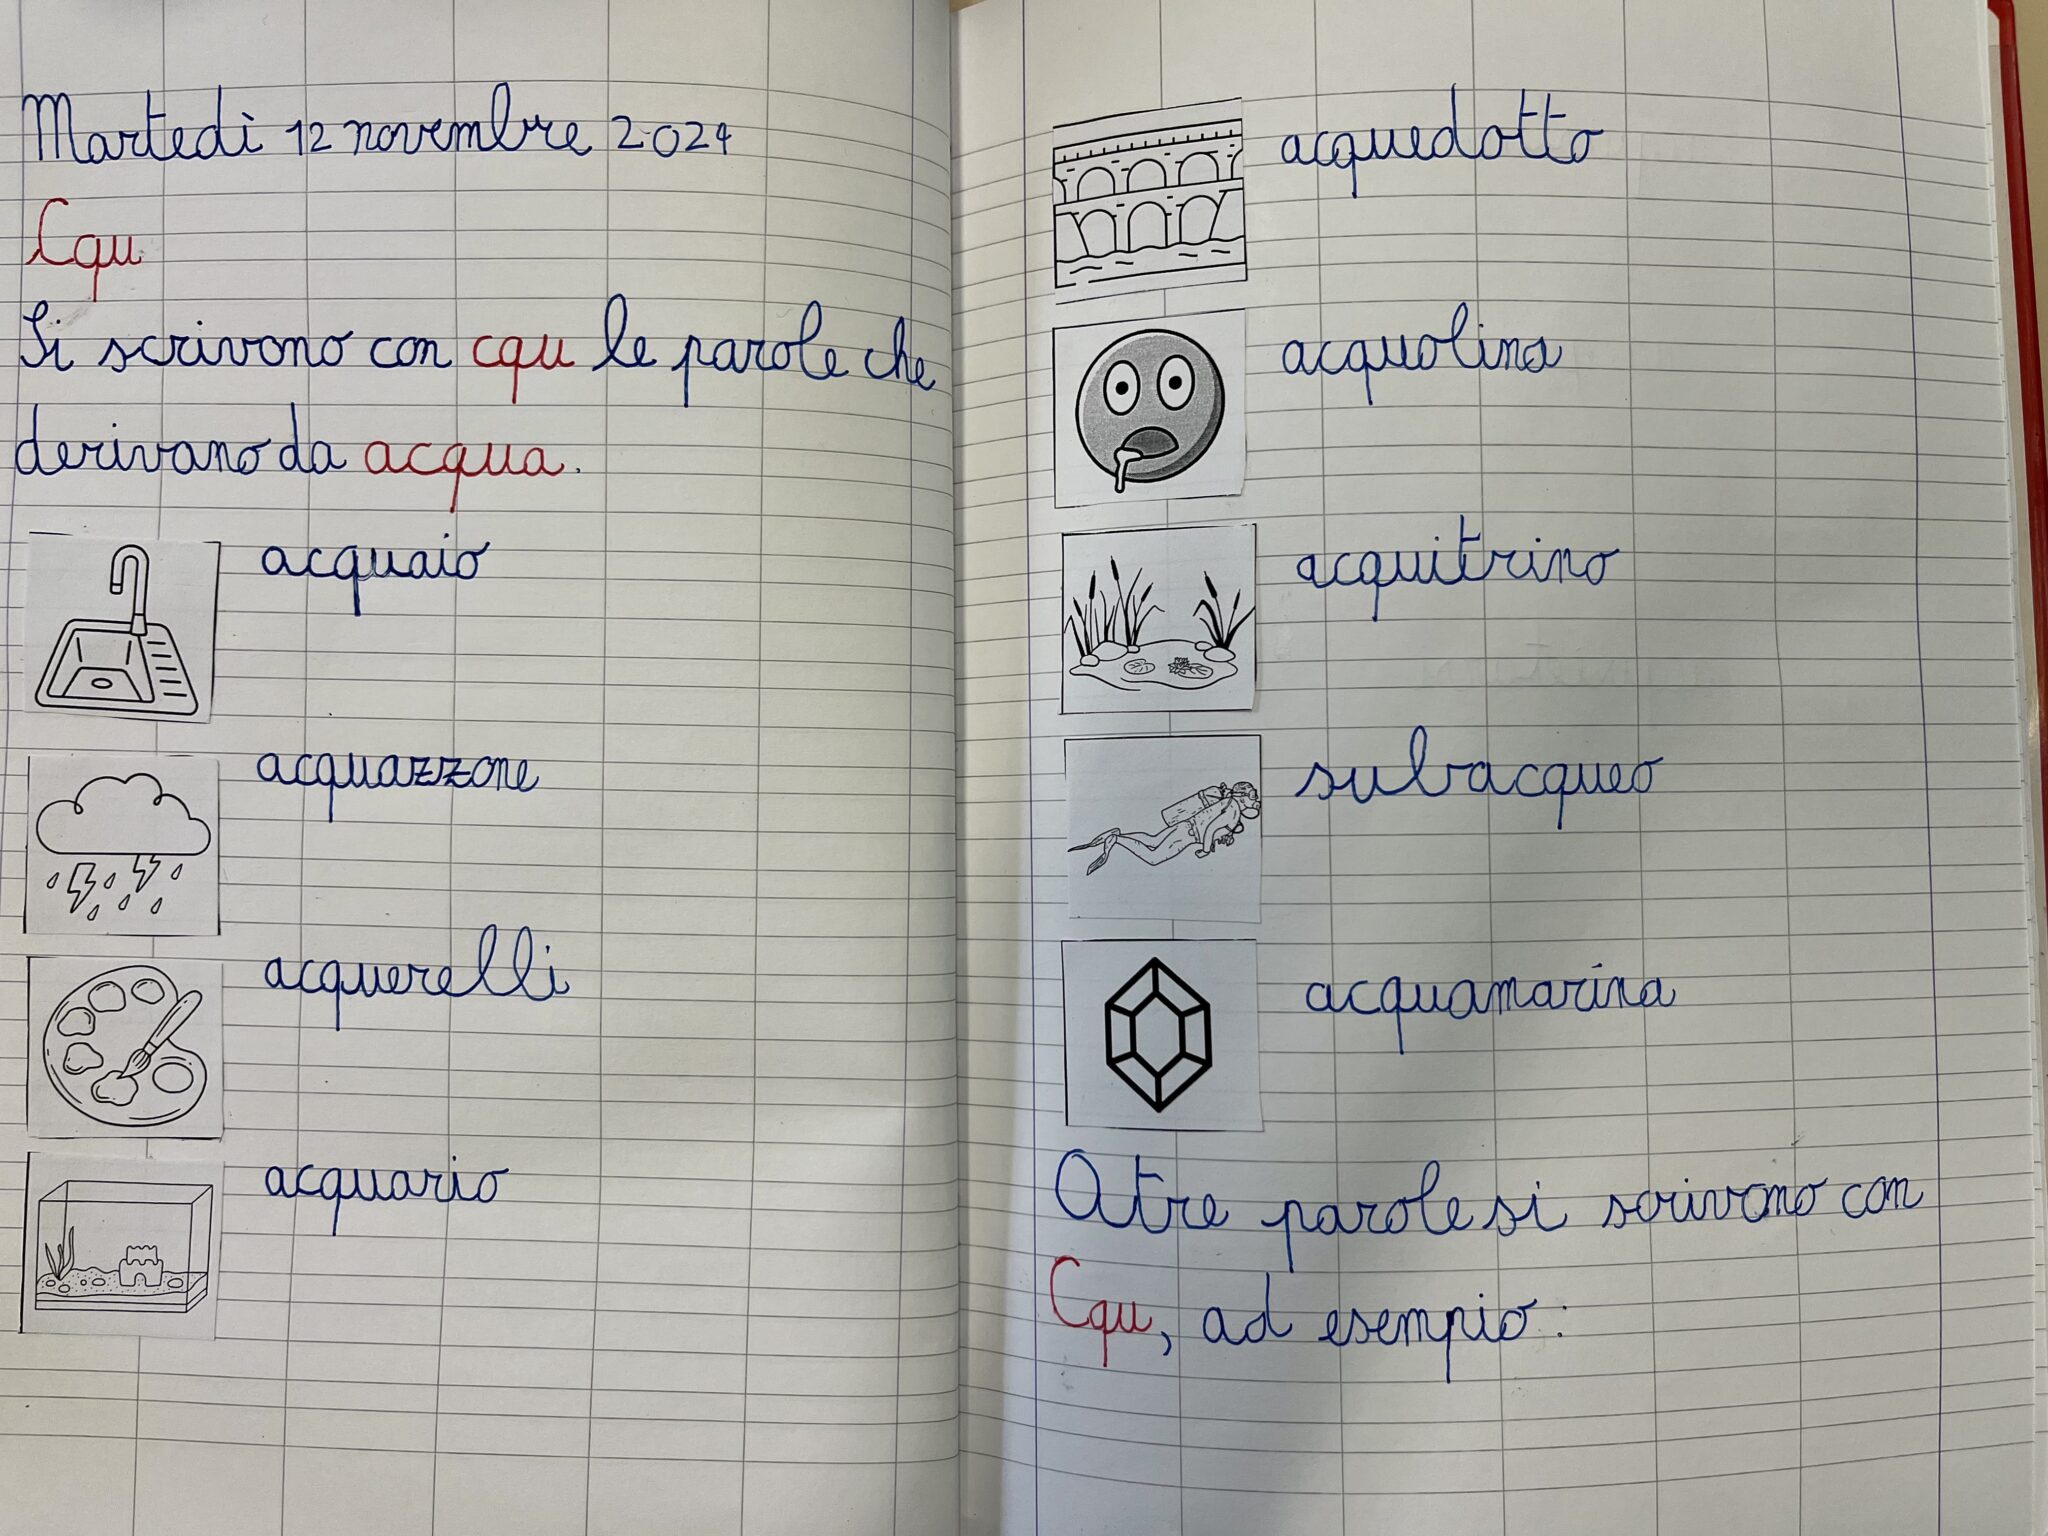 Martedì 12 novembre 2024
Cqu
Si scrivono con cqu le parole che
derivano da acqua.
acquaio
acquazzone
acquerelli
acquario
acquedotto
acquolina
acquitrino
subacqueo
acquamarina
Atre parole si scrivono con
Cqu, ad esempio: